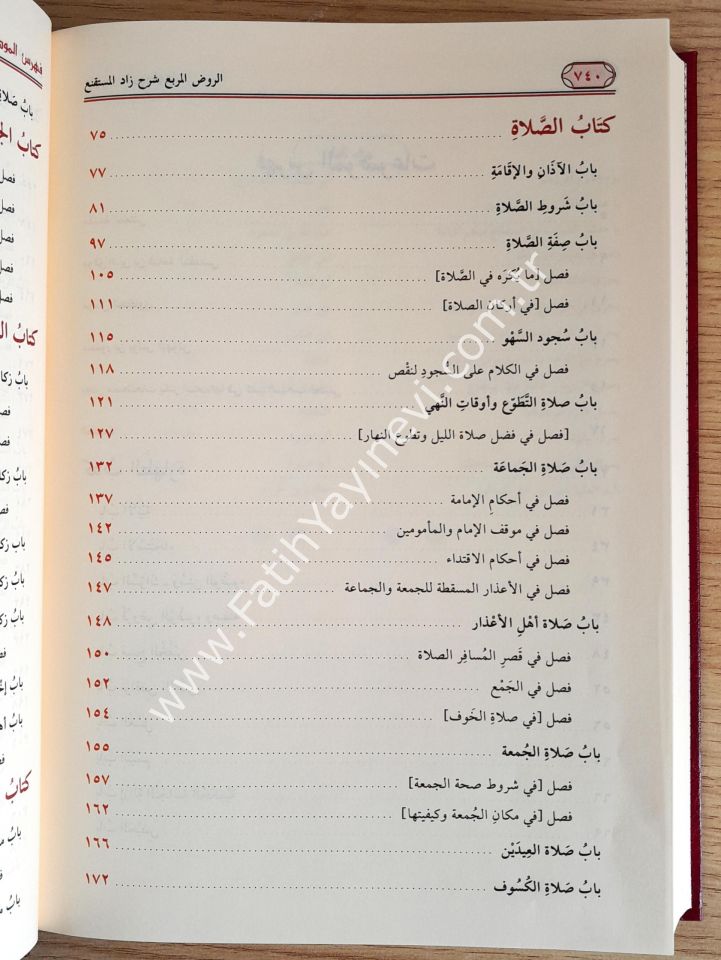 ٧٤٠ الروض المربع شرح زاد المستقنع
كتَابُ الصَّلاةِ ٧٥
بابُ الآذَانِ والإقَامَةِ ٧٧
بابُ شَروطِ الصَّلاةِ ٨١
بابُ صِفَةِ الصَّلاةِ ٩٧
فصل [ما يُكرَه في الصَّلاة] ١٠٥
فصل [في أركان الصلاة] ١١١
بابُ سُجود السَّهْو ١١٥
فصل في الكلام على السُّجودِ لنقْص ١١٨
بابُ صلاةِ التَّطَوّع وأوقاتِ النَّهي ١٢١
[فصل في فضل صلاة الليل وتطوع النهار] ١٢٧
بابُ صَلاةِ الجَماعَة ١٣٢
فصل في أحكامِ الإمامة ١٣٧
فصل في موقف الإمام والمأمومين ١٤٢
فصل في أحكام الاقتداء ١٤٥
فصل في الأعذار المسقطة للجمعة والجماعة ١٤٧
بابُ صَلاة أهْلِ الأعْذار ١٤٨
فصل في قَصرِ المُسافِر الصلاة ١٥٠
فصل في الجَمْع ١٥٢
فصل [في صلاةِ الخَوف] ١٥٤
بابُ صَلاةِ الجُمعة ١٥٥
فصل [في شروط صحة الجمعة] ١٥٧
فصل [في مكانِ الجُمعة وكيفيتها] ١٦٢
بابُ صَلاة العِيدَيْن ١٦٦
بابُ صَلاةِ الكُسُوف ١٧٢
www.FatihYayinevi.com.tr